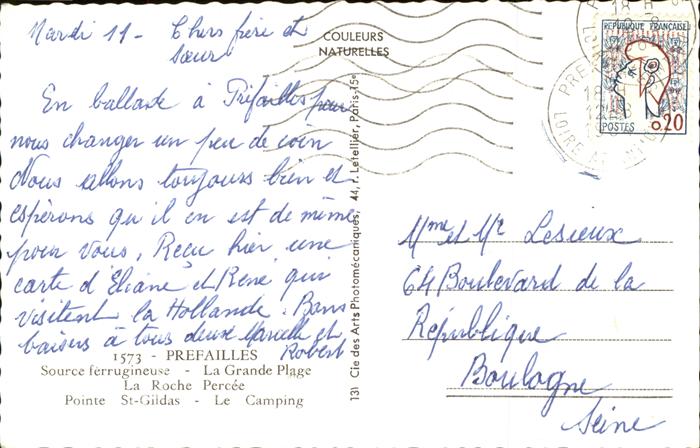 Mardi 11 - Chers frère et
sœur
En ballade à Préfailles pour
nous changer un peu de coin
Nous allons toujours bien et
espérons qu'il en est de même
pour vous, Reçu hier une
carte d'Eliane et René qui
visitent la Hollande. Bons
baisers à tous deux Marcelle et
Robert
1573 - PREFAILLES
Source ferrugineuse - La Grande Plage
La Roche Percée
Pointe St-Gildas - Le Camping
COULEURS
NATURELLES
131 Cie des Arts Photomécaniques, 44, r. Letellier, Paris-15e
REPUBLIQUE FRANÇAISE
POSTES 0,20
Mme et Mr Lesieux
64 Boulevard de la
République
Boulogne
Seine